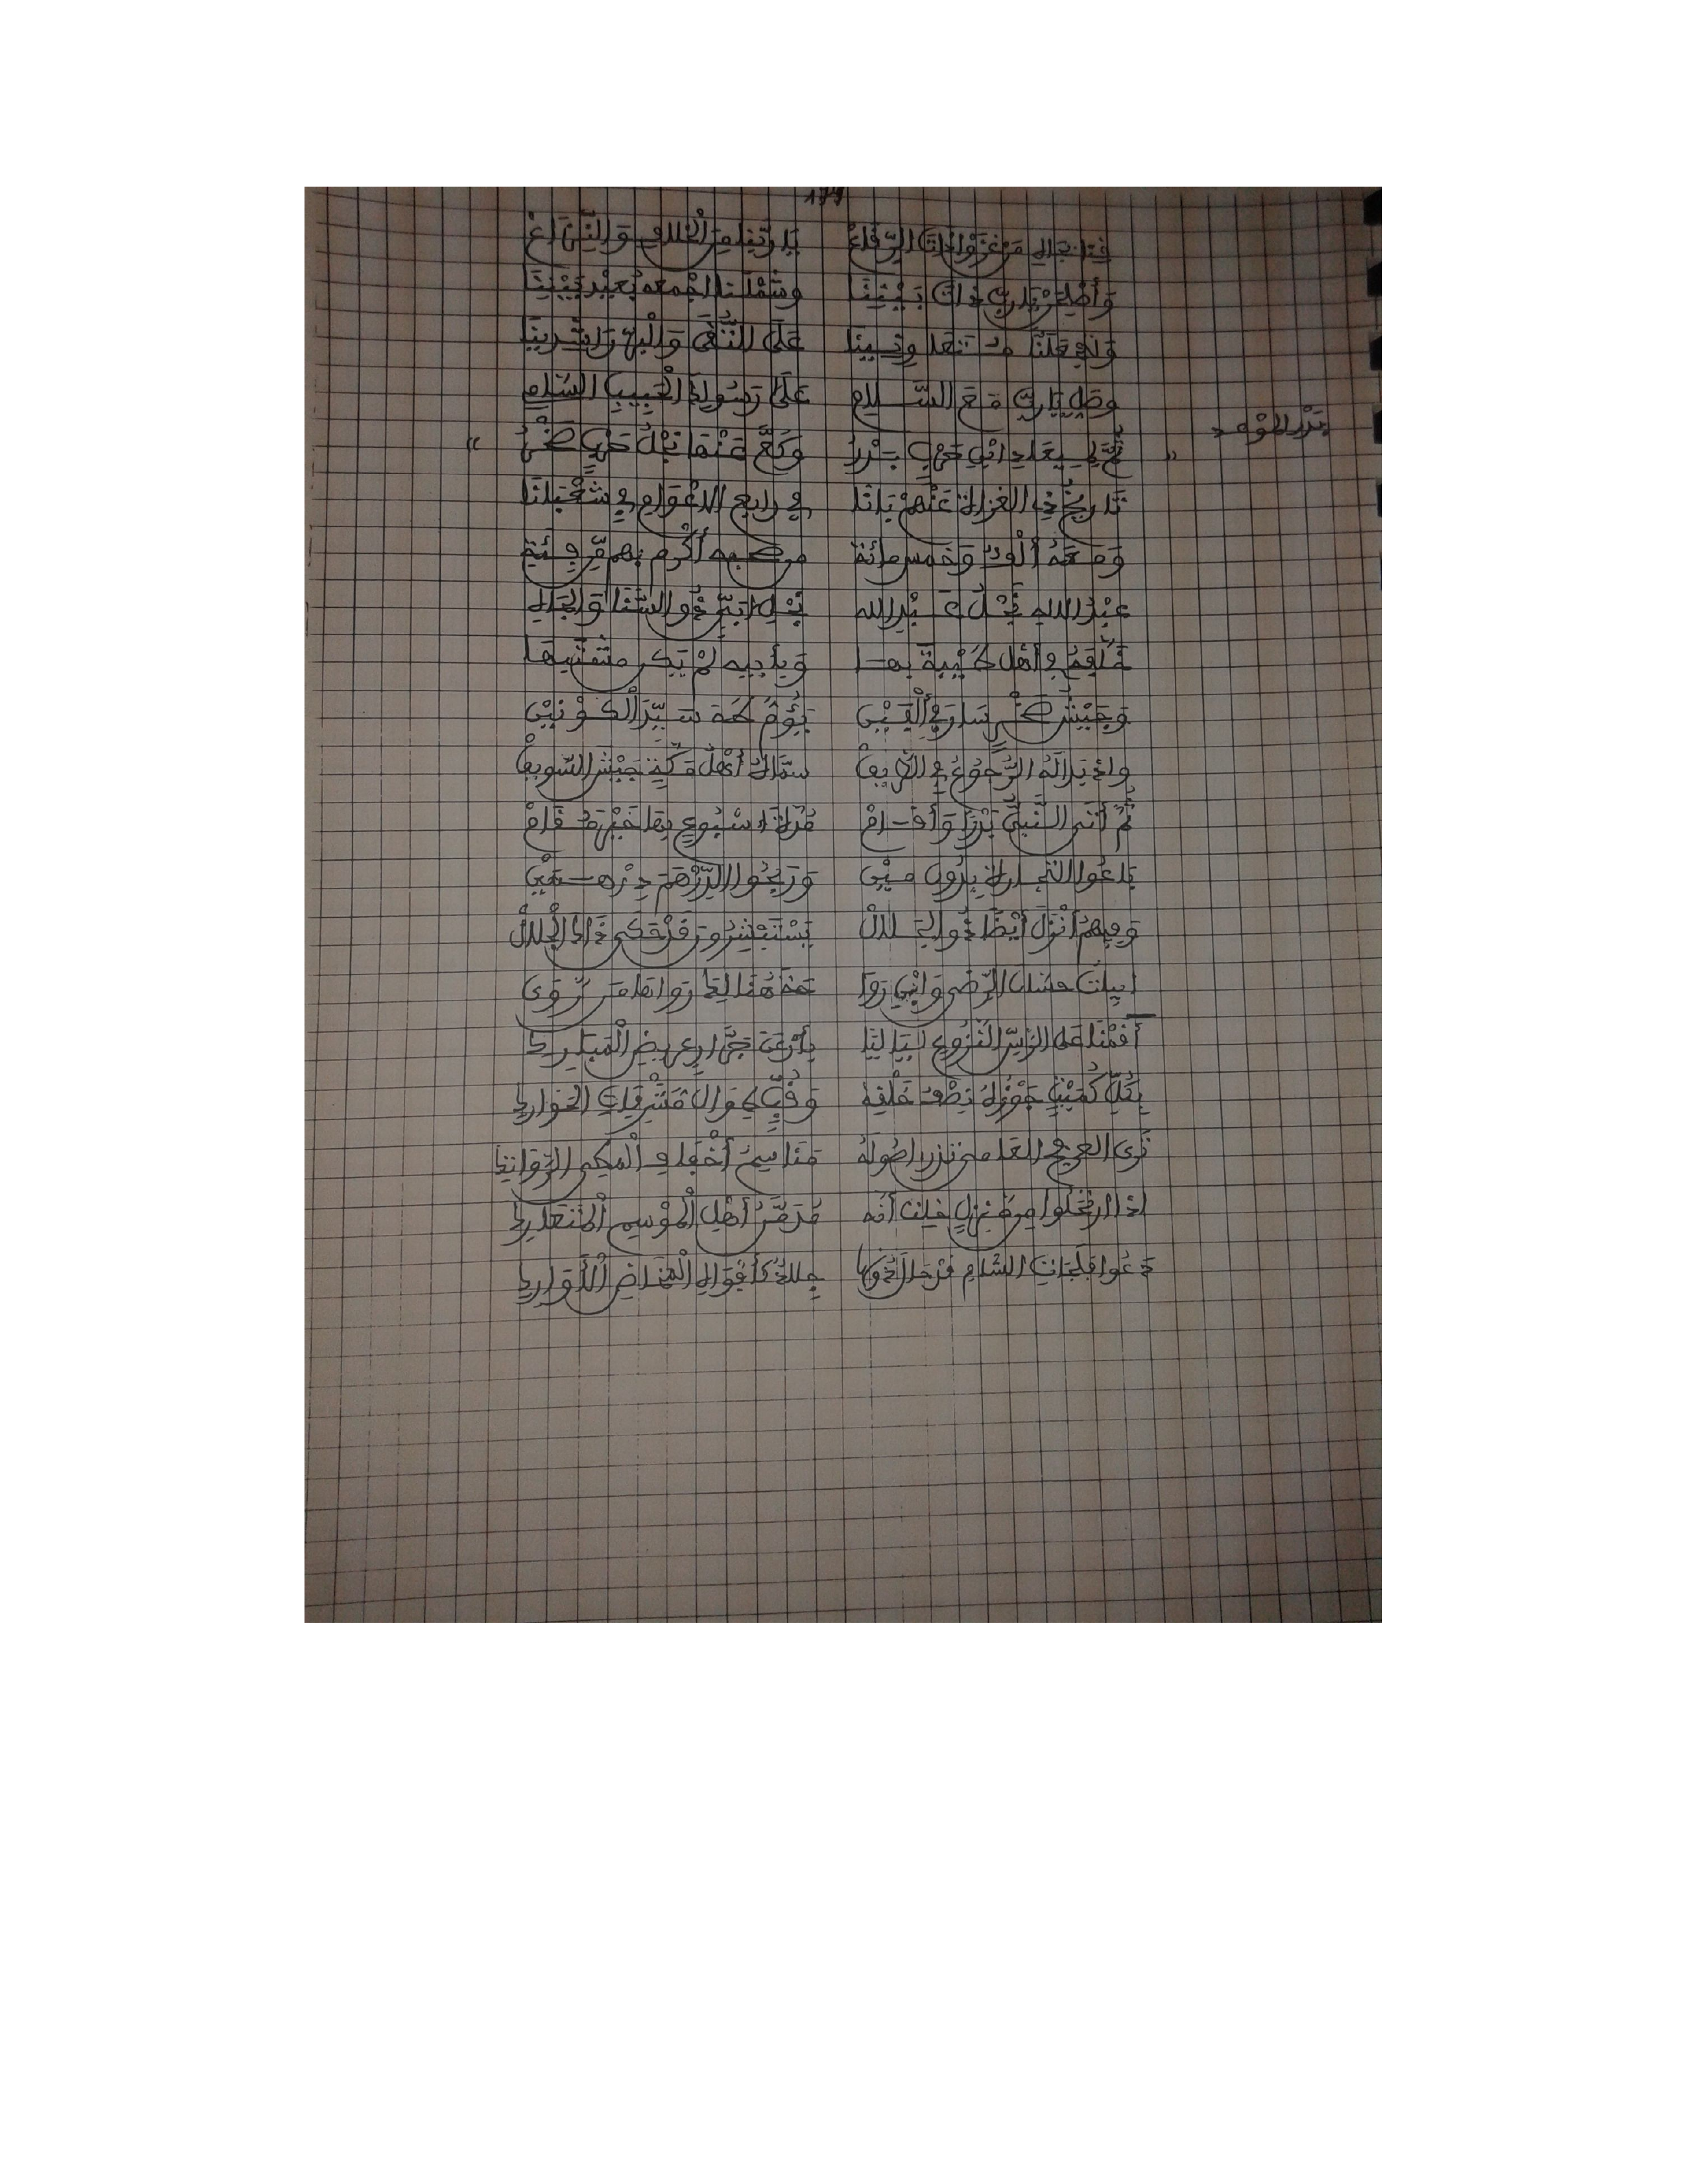 يا ربنا من الخلاف والنزاع
وأصلحن يا رب ذات بيننا وشملنا اجمعه بعيد بيننا
على التقى والبر راشدينا
وصل يا رب مع السلام على رسولك الحبيب السام
بدر الموعد
ثم لميعاد ابن حرب بدر وكع عنها نجل حرب صخر
تاريخ ذي الغزاة عنهم بانا في رابع الاعوام في شعبانا
ومعه ألف وخمس مائة من صحبه أكرم بهم من فئة
عبد الله نجل عبد الله نجل أبي ذو السنا والجاه
خلفه في أهل طيبة بها
وجيش صخر سار في ألفين يؤم طه سيد الكونين
واذ بدا له الرجوع في الطريق سماه أهل مكة جيش السويق
ثم أتى النبي بدرا وأقام مدة اسبوع بها خير مقام
باعوا التجارة بدون مين وربحوا الدرهم درهمين
وفيهم أنزل أيضا ذو الجلال يستبشرون
ابيات حسان الرضى وابن روا حة هنا لقد رواها من روى
أقمنا على الرس النزوع لياليا بأرعن جرار عريض المبارك
بكل كميت جوزه نصف خلقه وقب طوال مشرفات الحوارك
ترى العرفج العامي تذري اصوله مناسم أخفاف المطي الرواتك
اذا ارتحلوا من منزل خلت أنه مدمن أهل الموسم المتعارك
دعوا فلجات الشام قد حال دونها جلاد كأفواه المخاض الأوارك